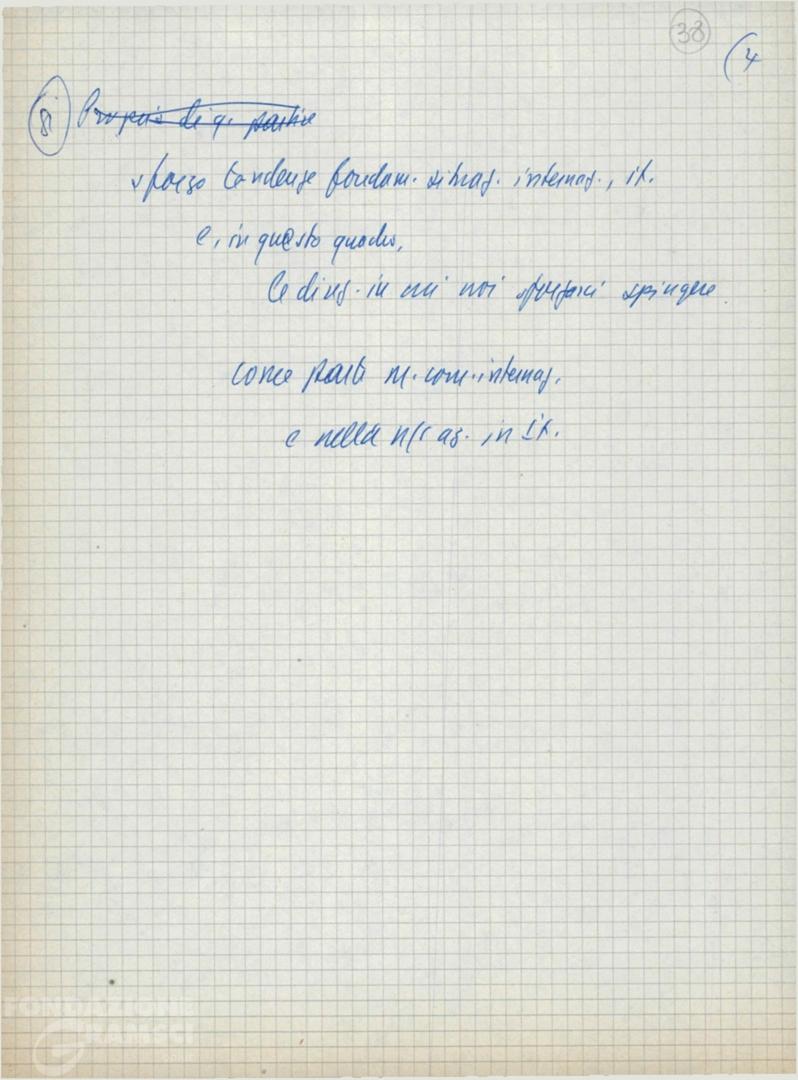 38
(4
8) Proprio di q. partire
sforzo tendenze fondam. situaz. internaz., it.
e, in questo quadro,
le direz. in cui noi sforzarci spingere
come parte m. com. internaz.
e nella ns az. in It.
FONDAZIONE
GRAMSCI